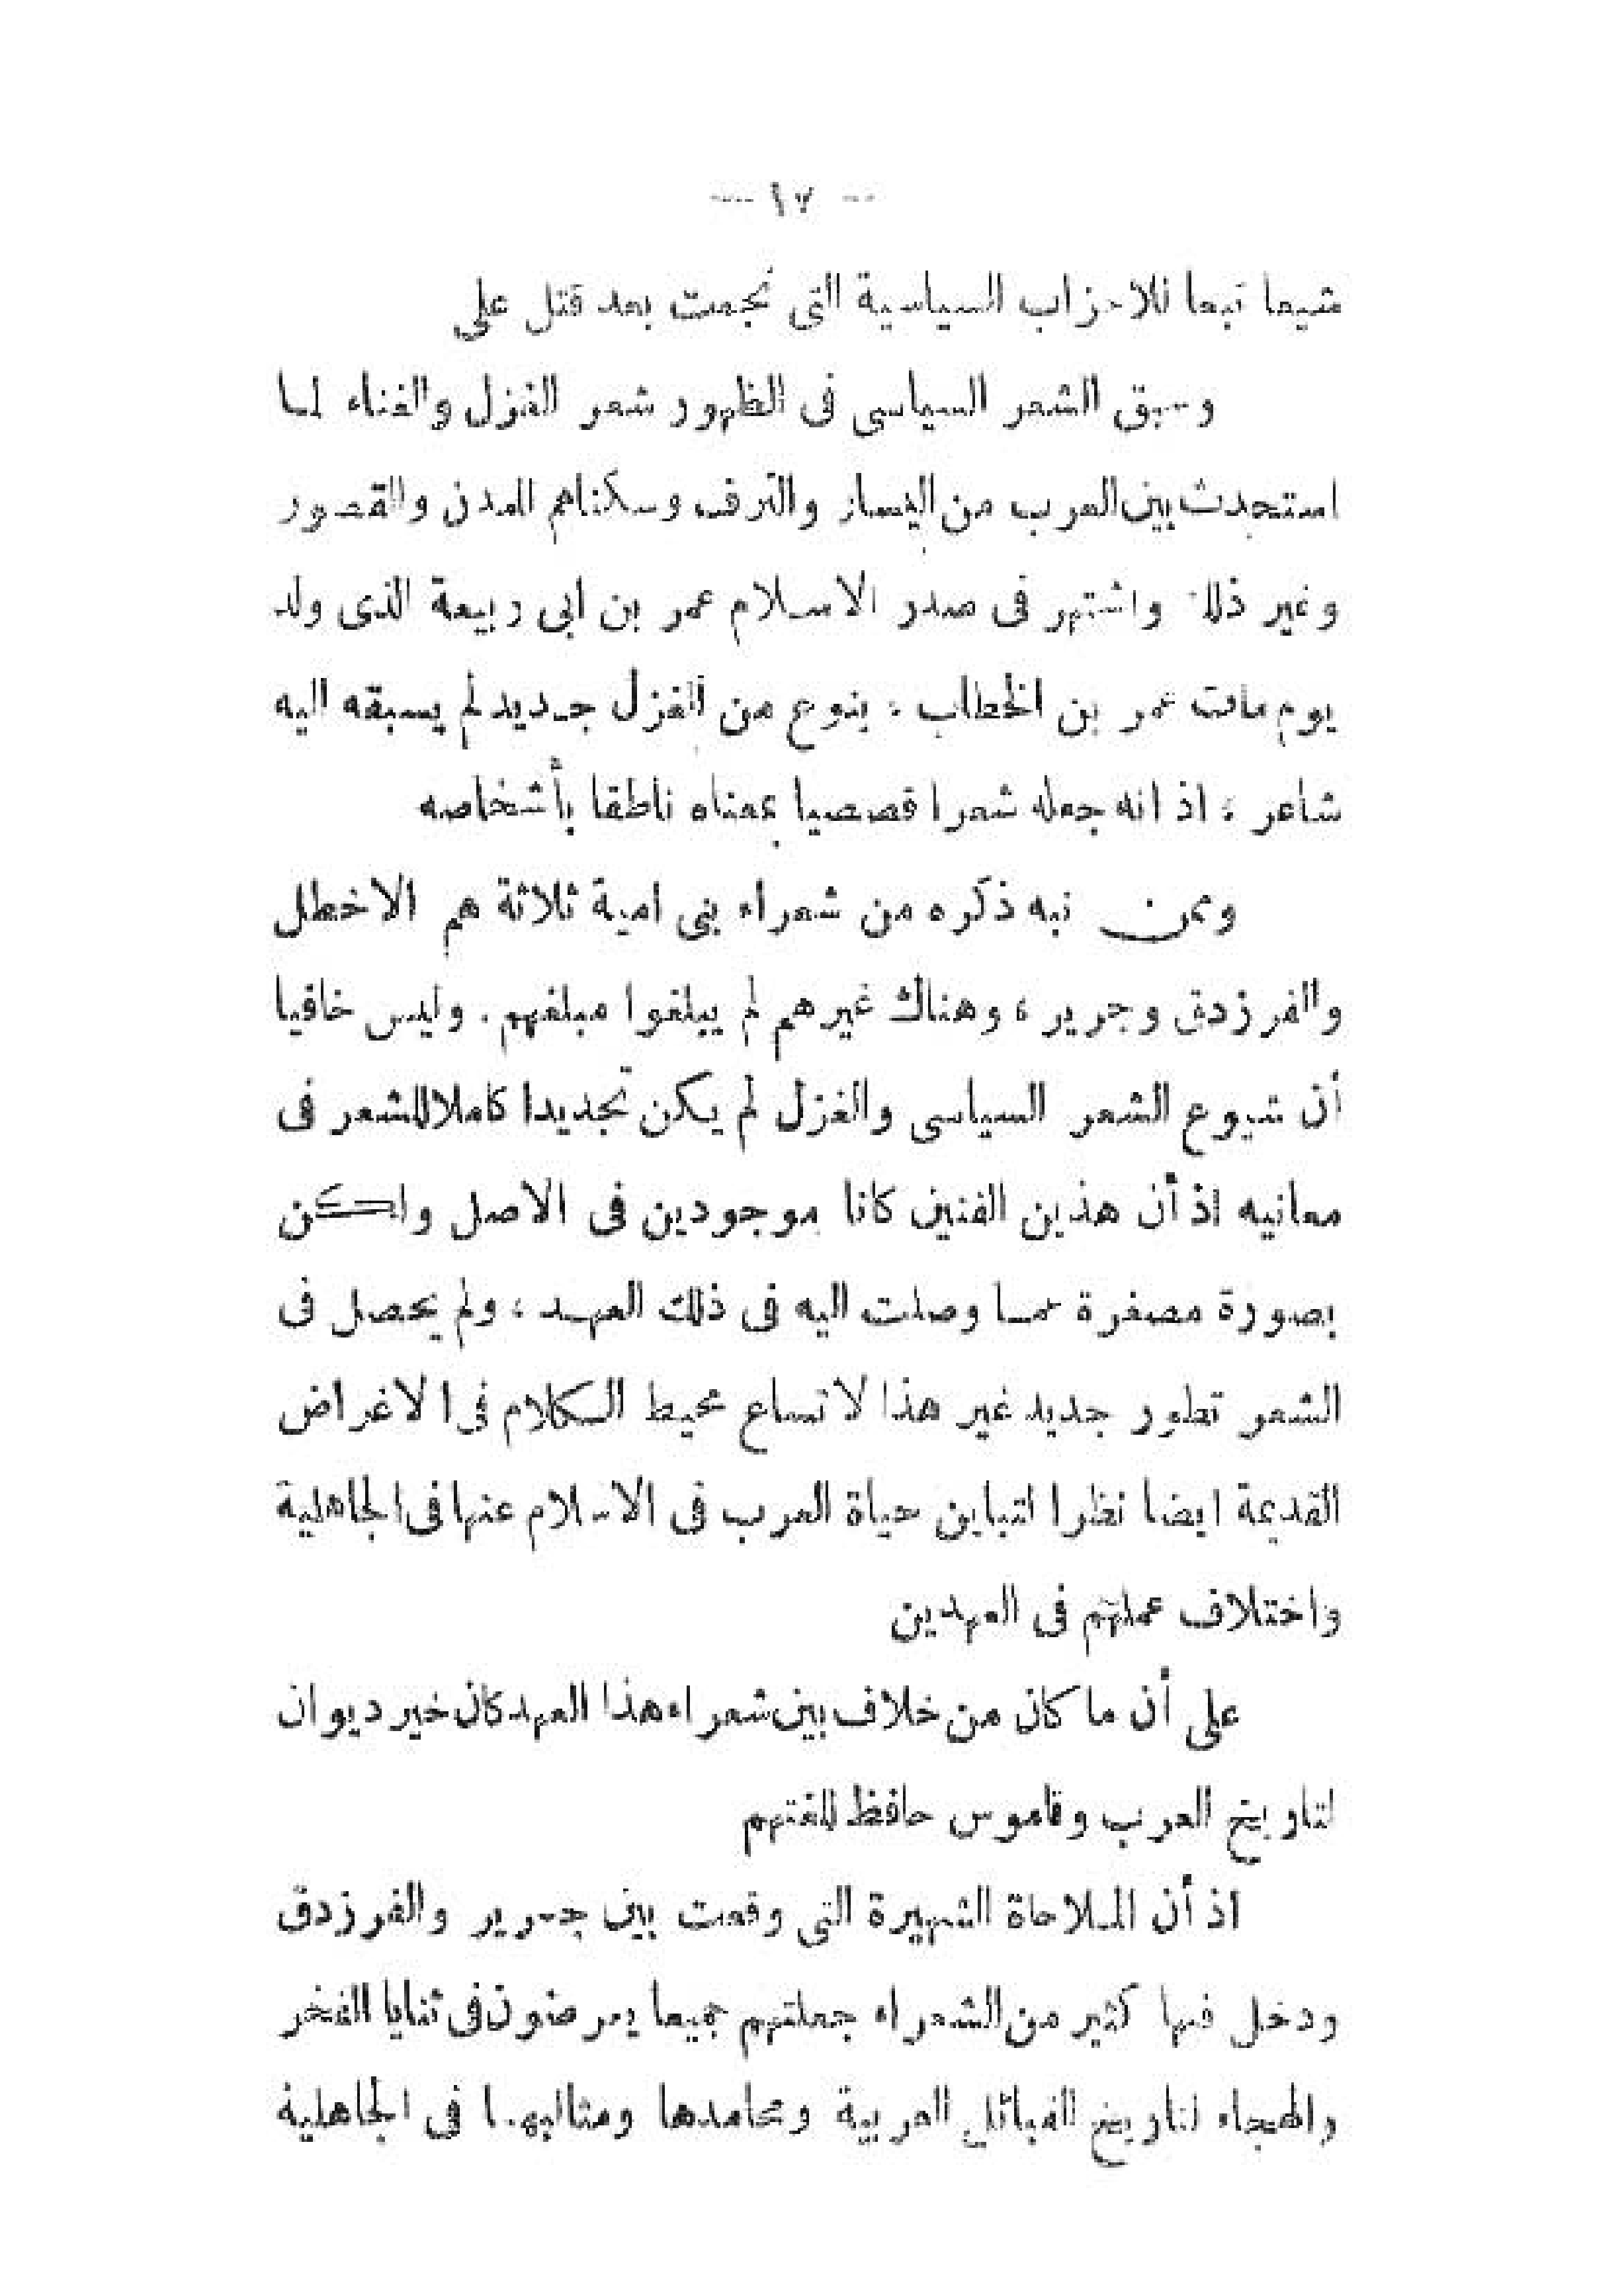 — ١٧ —
شيعا تبعا للاحزاب السياسية التى نجمت بعد قتل على
وسبق الشعر السياسى فى الظهور شعر الغزل والغناء لما
استجدث بين العرب من اليسار والترف وسكناهم المدن والقصور
وغير ذلك واشتهر فى صدر الاسلام عمر بن ابى ربيعة الذى ولد
يوم مات عمر بن الخطاب ، بنوع من الغزل جديد لم يسبقه اليه
شاعر ، اذ انه جعله شعرا قصصيا بمعناه ناطقا بأشخاصه
وممن نبه ذكره من شعراء بنى امية ثلاثة هم الاخطل
والفرزدق وجرير ، وهناك غيرهم لم يبلغوا مبلغهم . وليس خافيا
أن شيوع الشعر السياسى والغزل لم يكن تجديدا كاملا للشعر فى
معانيه اذ أن هذين الفنين كانا موجودين فى الاصل ولكن
بصورة مصغرة عما وصلت اليه فى ذلك العهد ، ولم يحصل فى
الشعر تطور جديد غير هذا لاتساع محيط الكلام فى الاغراض
القديمة ايضا نظرا لتباين حياة العرب فى الاسلام عنها فى الجاهلية
واختلاف عملهم فى العهدين
على أن ما كان من خلاف بين شعراء هذا العهد كان خير ديوان
لتاريخ العرب وقاموس حافظ للغتهم
اذ أن الملاحاة الشهيرة التى وقعت بين جرير والفرزدق
ودخل فيها كثير من الشعراء جعلتهم جميعا يعرضون فى ثنايا الفخر
والهجاء لتاريخ القبائل العربية ومحامدها ومثالبها فى الجاهلية